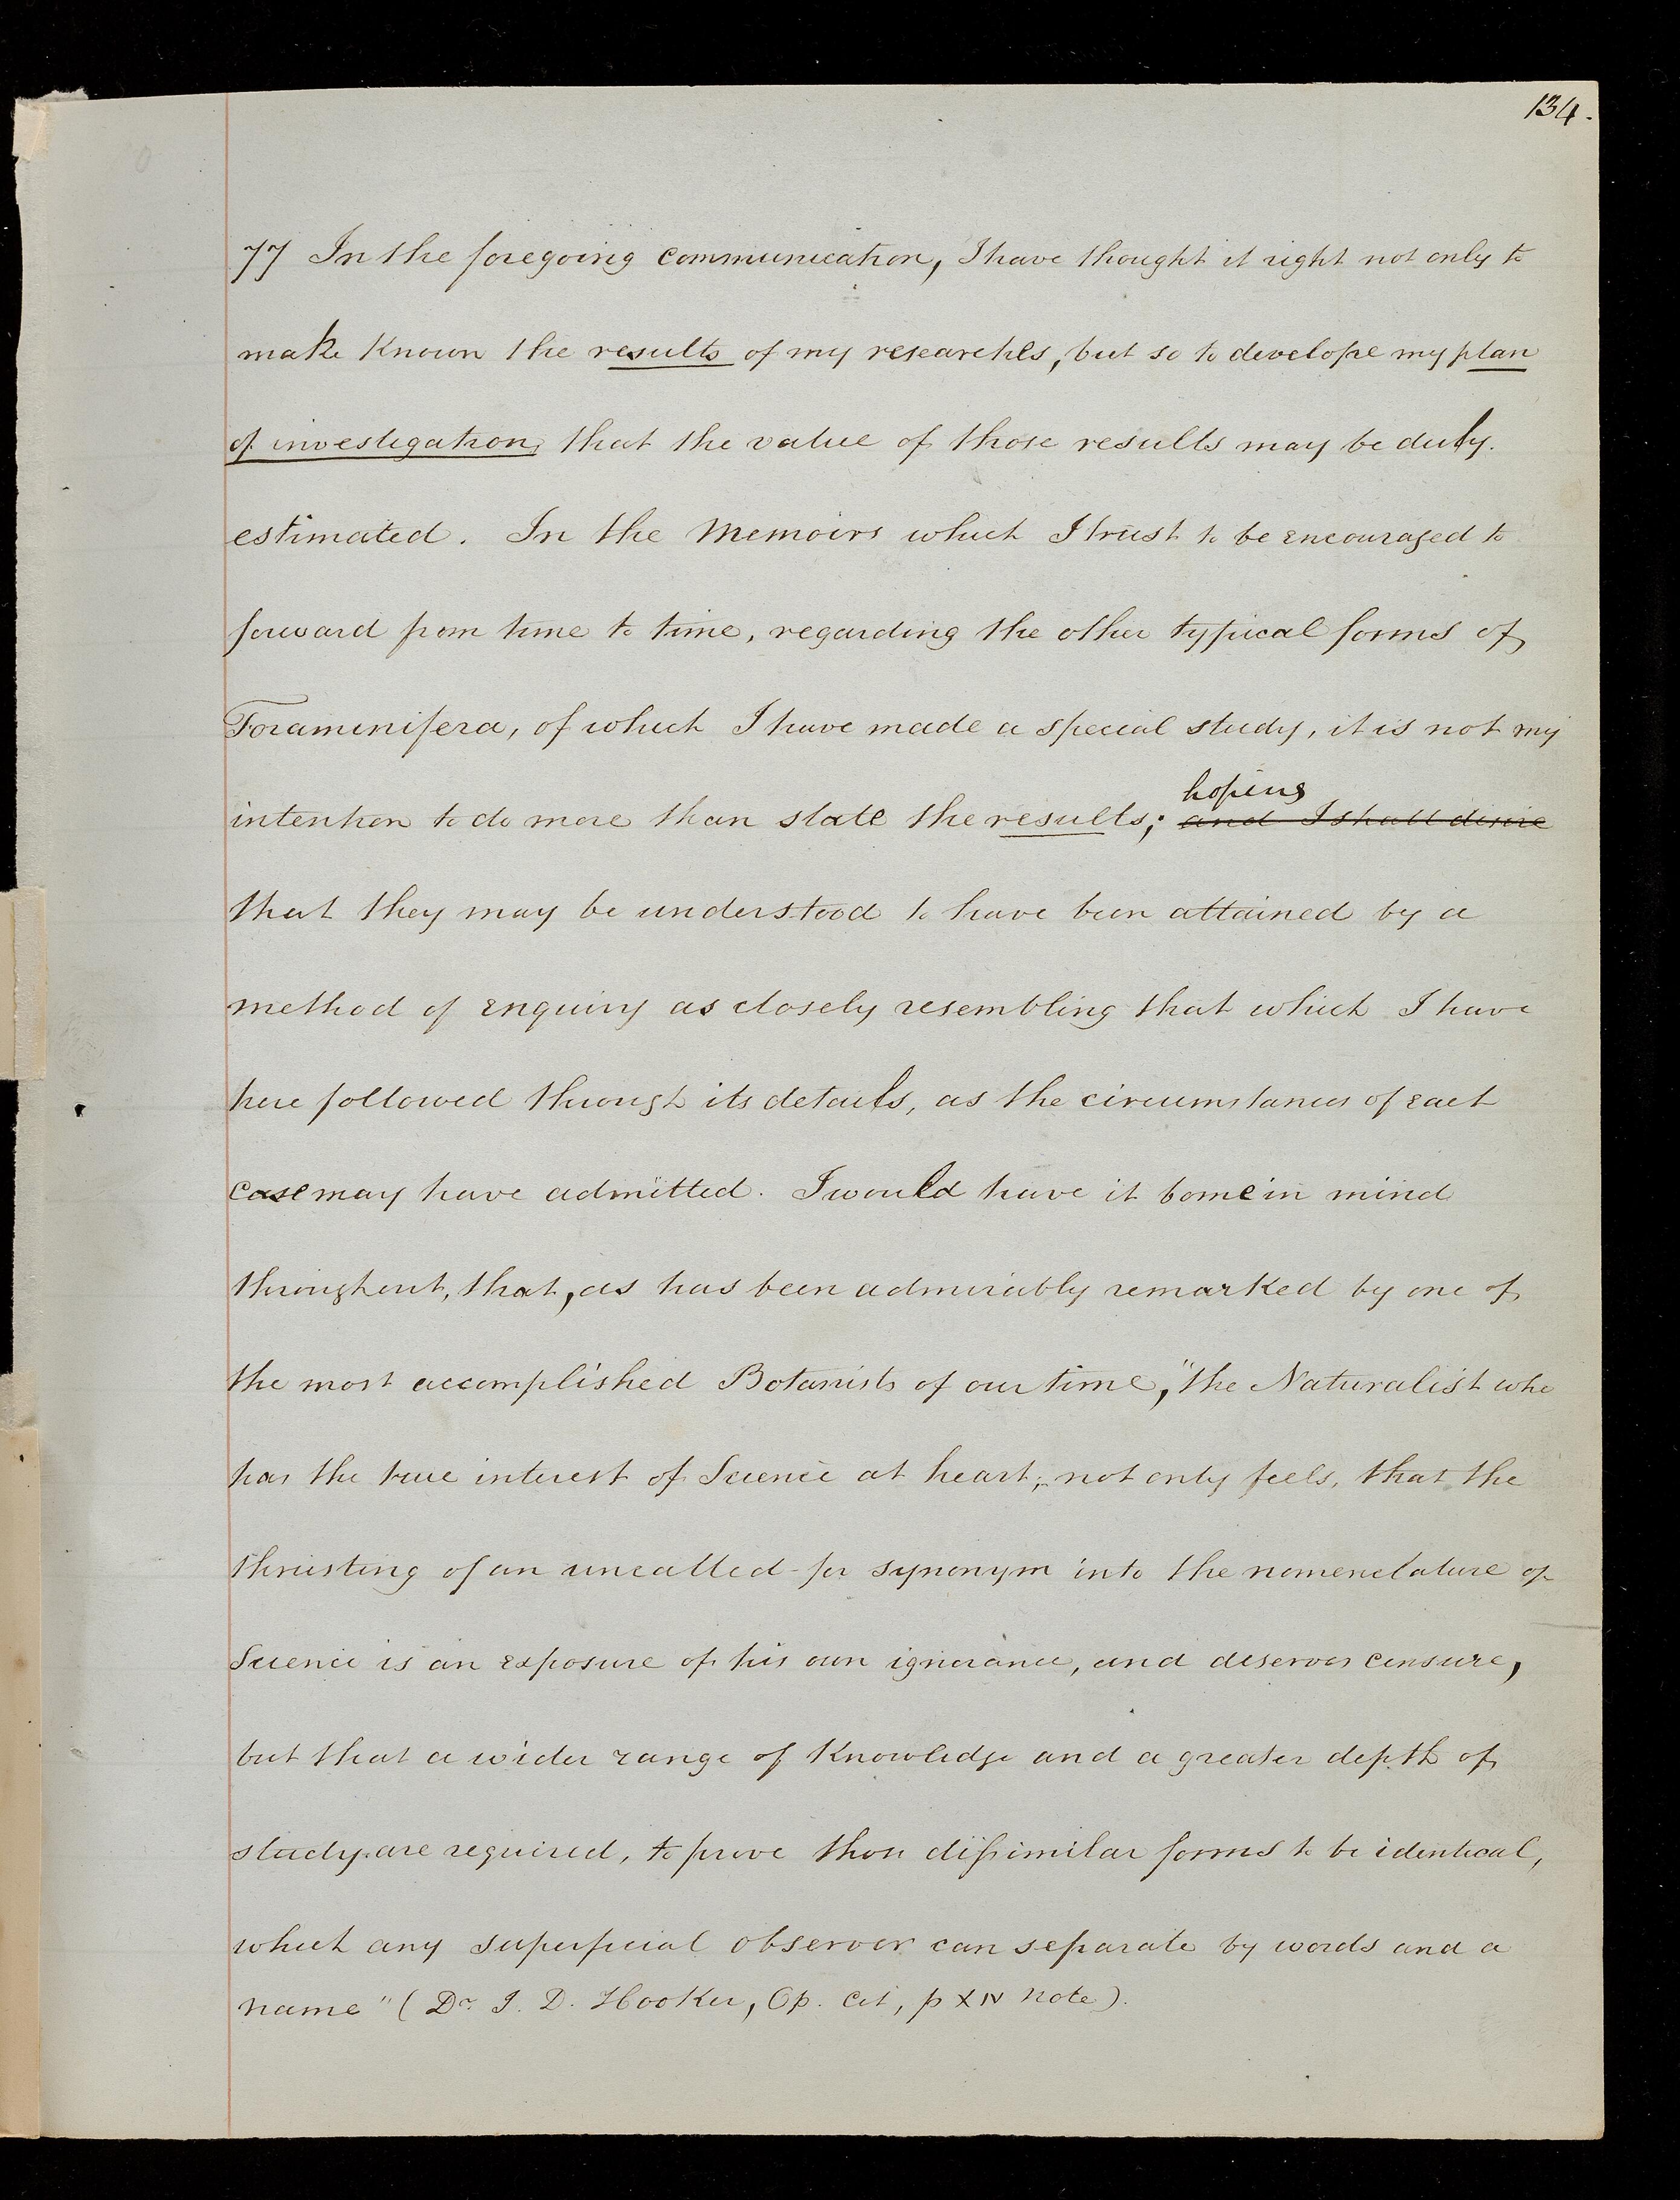 134.
77 In the foregoing communication, I have thought it right not only to
make known the results of my researches, but so to develope my plan
of investigation, that the value of those results may be duly.
estimated. In the Memoirs which I trust to be encouraged to
forward from time to time, regarding the other typical forms of
Foraminifera, of which I have made a special study, it is not my
hoping
intention to do more than state the results; and I shall desire
that they may be understood to have been attained by a
method of enquiry as closely resembling that which I have
here followed through its details, as the circumstances of each
case may have admitted. I would have it borne in mind
throughout, that, as has been admirably remarked by one of
the most accomplished Botanists of our time, "the Naturalist who
has the true interest of Science at heart, not only feels, that the
thrusting of an uncalled-for synonym into the nomenclature of
Science is an exposure of his own ignorance, and deserves censure,
but that a wider range of knowledge and a greater depth of
study are required, to prove those dissimilar forms to be identical,
which any superficial observer can separate by words and a
name" (Dr. J. D. Hooker, Op. cit, p XIV note).